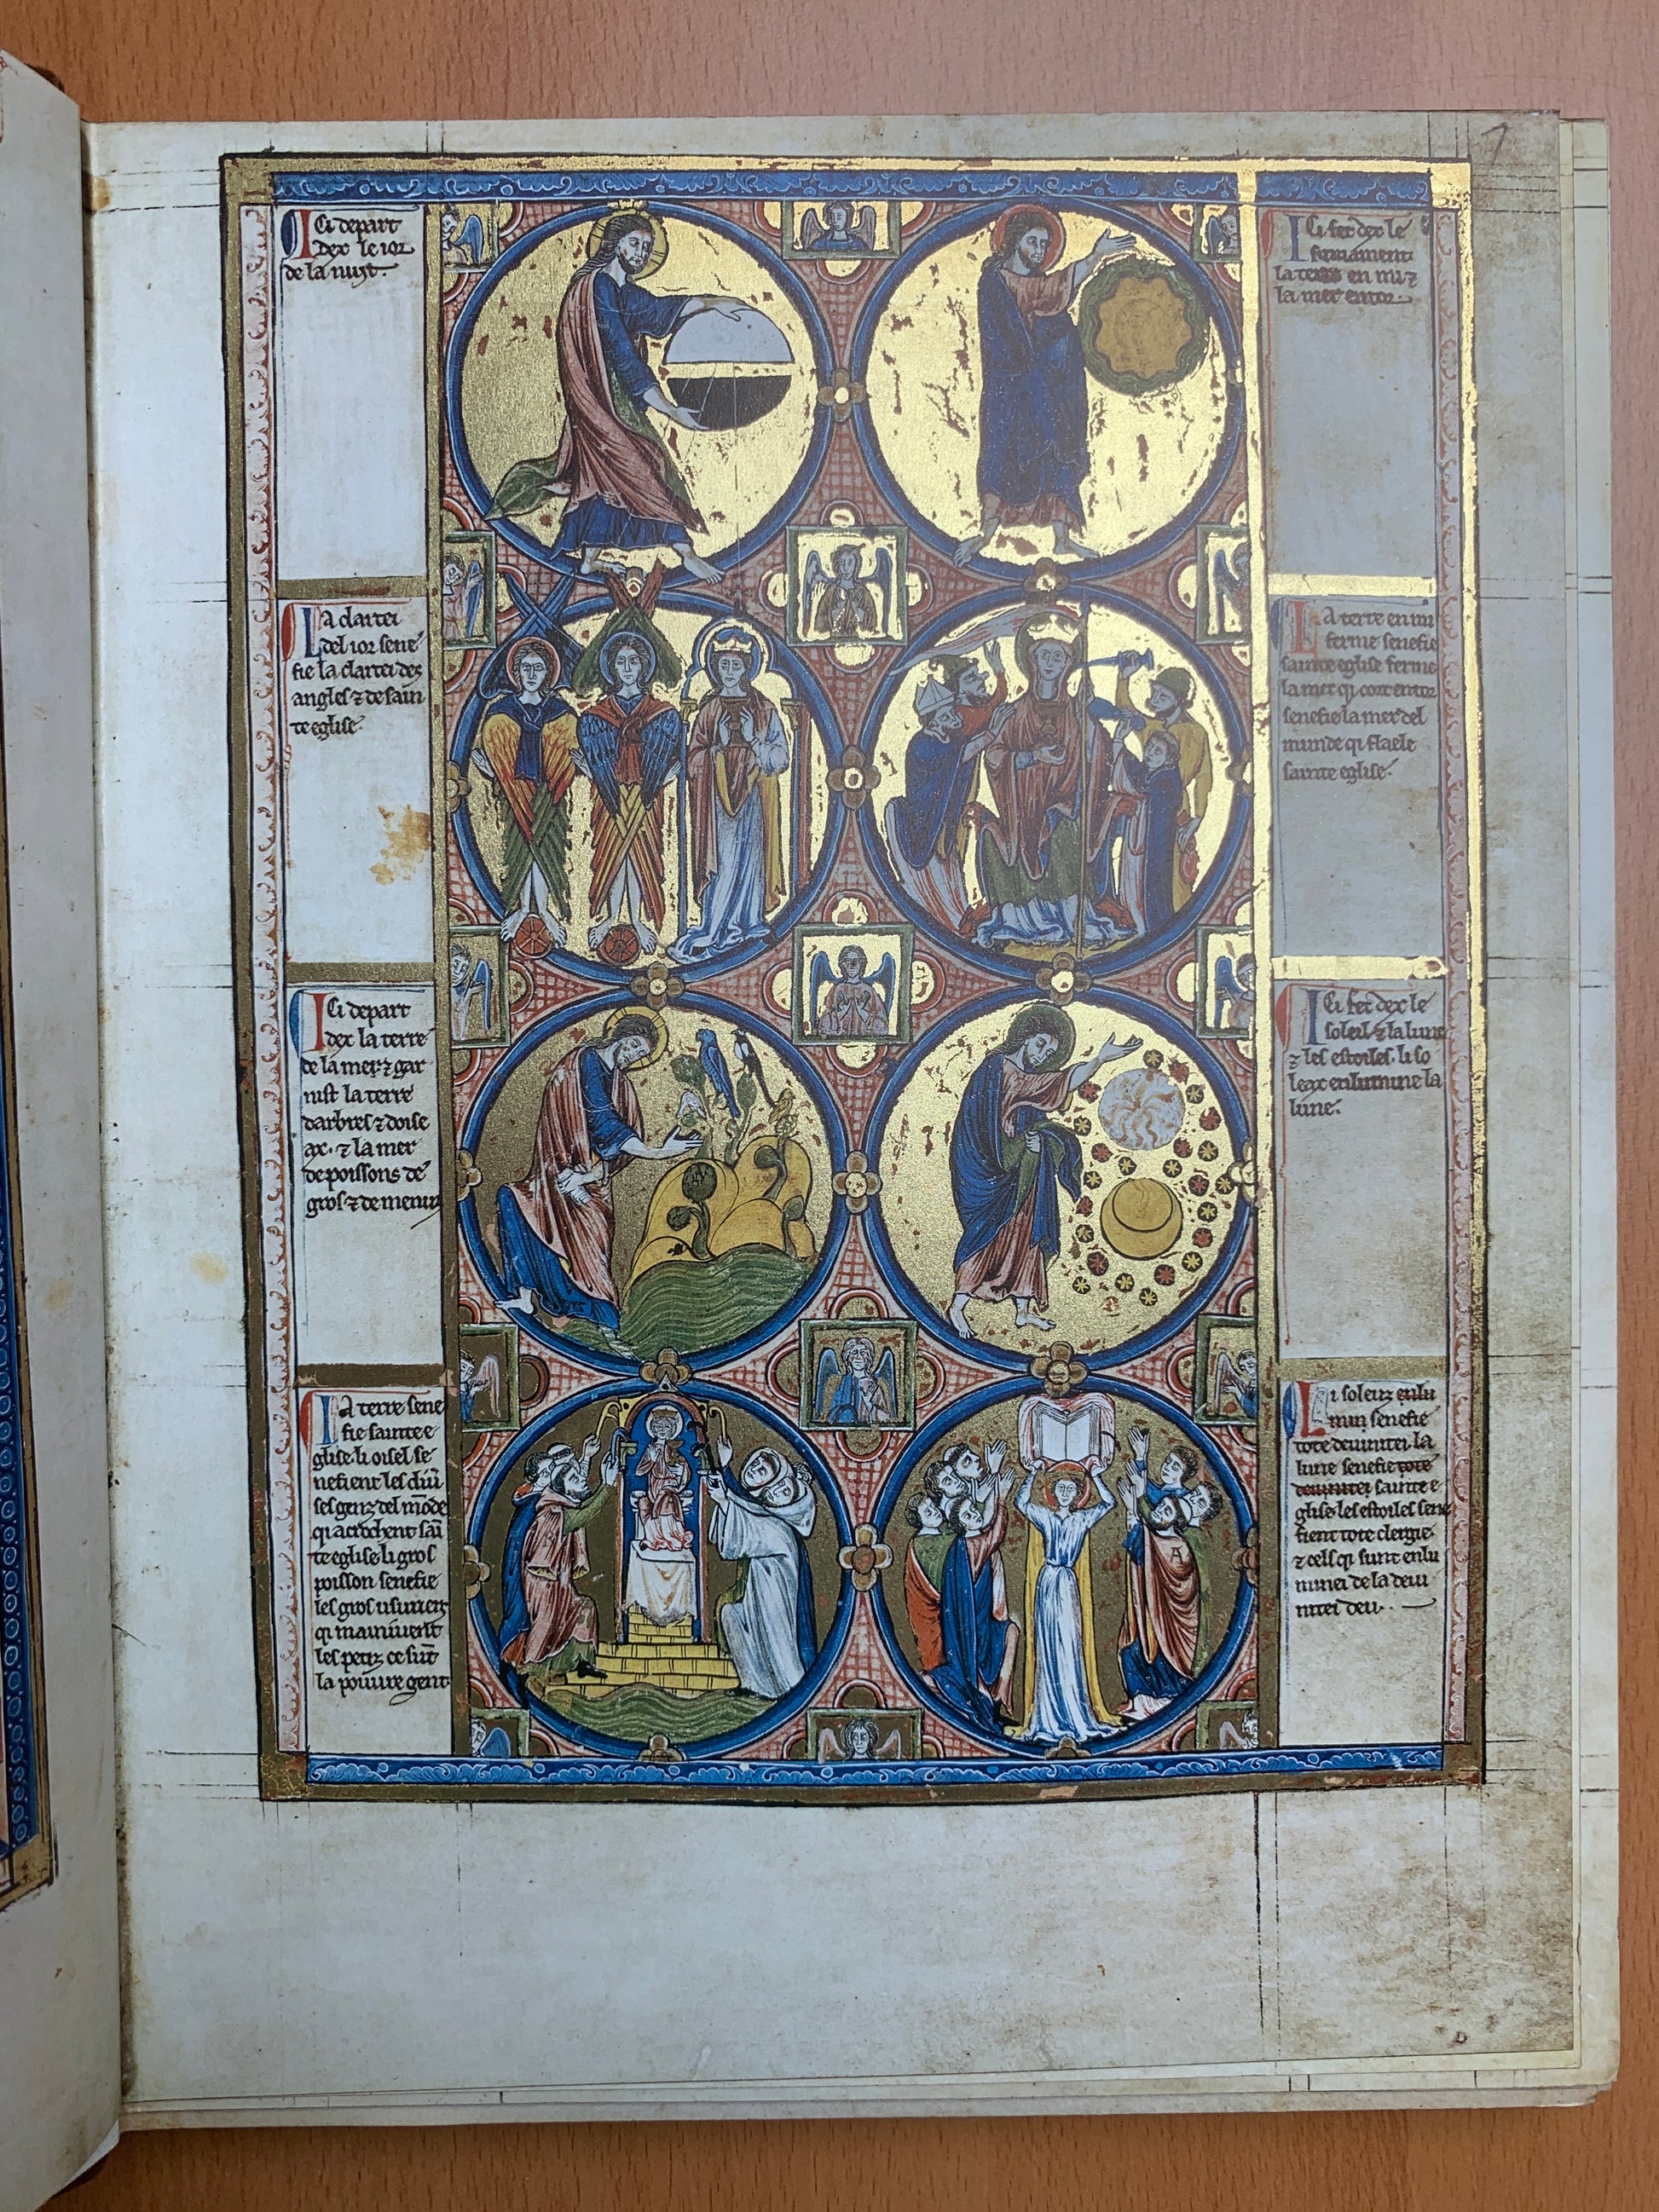 1
Ici depart
dex le ior
de la nuit.
La clartei
del ior sene
fie la clartei des
angles ⁊ de sain
te eglise.
Ici depart
dex la terre
de la mer ⁊ gar
nist la terre
darbres ⁊ doise
ax. ⁊ la mer
de poissons de
gros ⁊ de menuz
La terre sene
fie sainte e
glise li oisel se
nefient les diũ
ses genz del mõde
qi acrochent sai
te eglise li gros
poisson senefie
les gros usuriers
qi mainiuent
les petiz ce sũt
la pouure gent
Ici fet dex le
firmament
la terre en mi ⁊
la mer entor
La terre en mi
ferme senefie
sainte eglise ferme
la mer qi cort entor
senefie la mer del
munde qi flaele
sainte eglise.
Ici fet dex le
soleil ⁊ la lune
⁊ les estoiles. li so
leax enlumine la
lune.
Li soleuz enlu
mini senefie
tote deuinitei la
lune senefie tote
deuinitei sainte e
glise les estoiles sene
fient tote clergie
⁊ cels qi sunt enlu
minei de la deui
nitei deu.